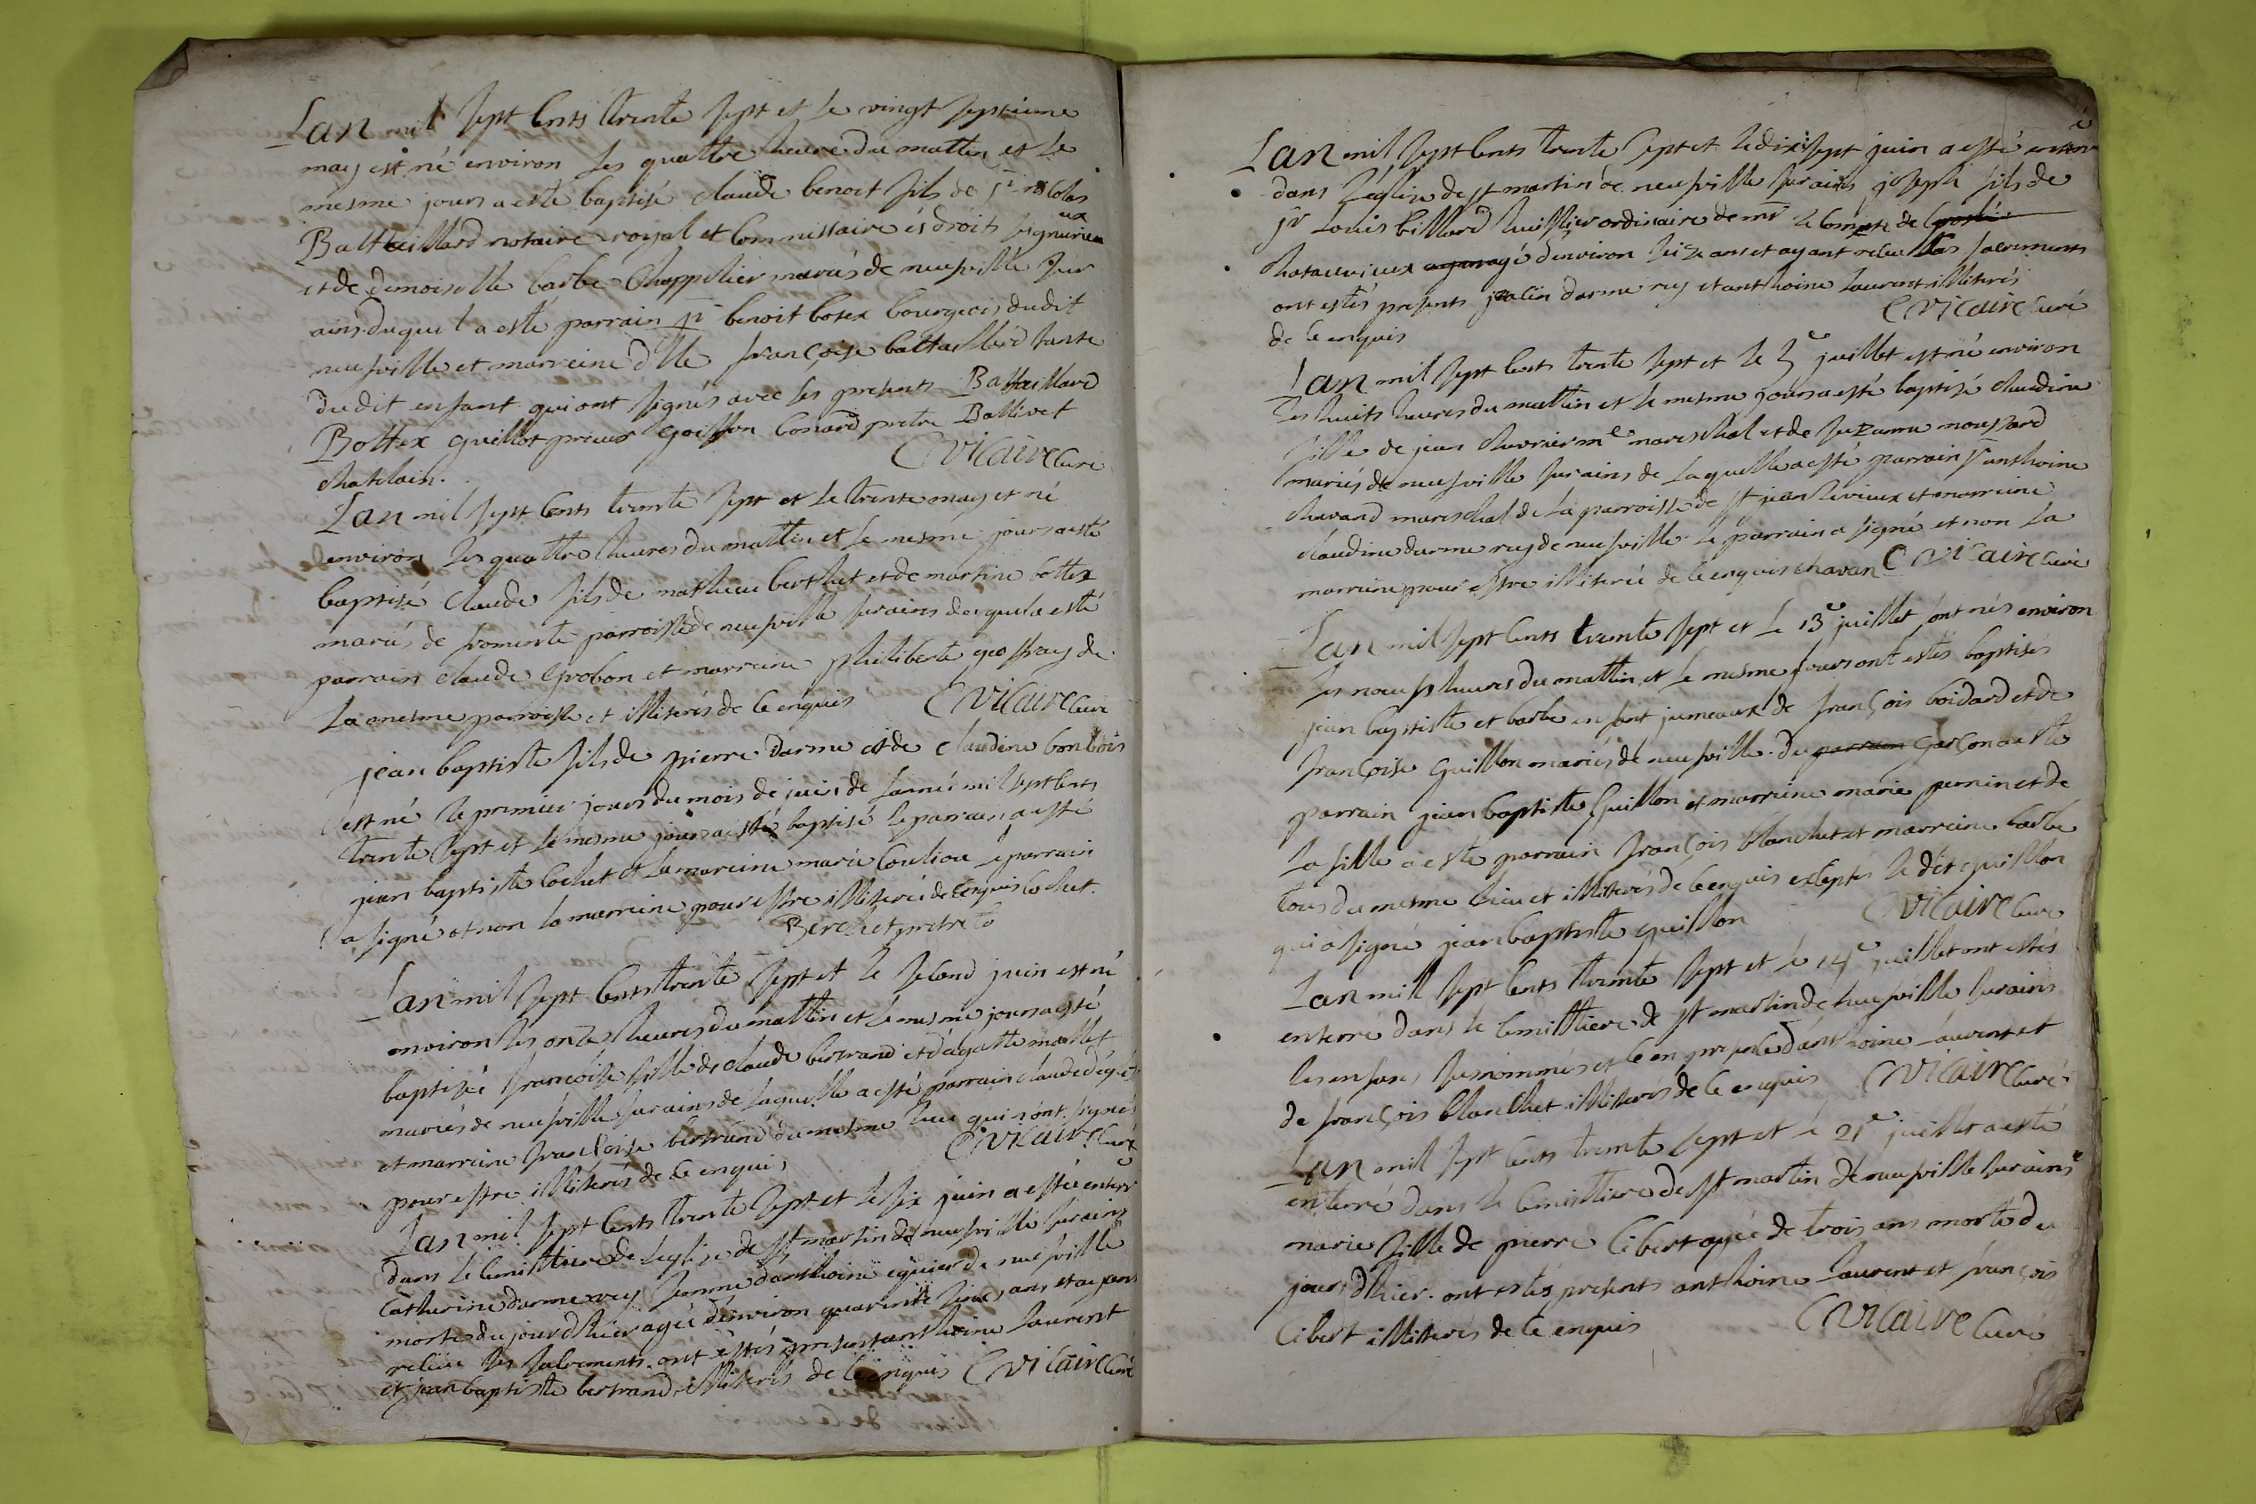 Lan mil sept cents trente sept et le vingt septieme
may est né environ les quattre heures du mattin et le
mesme jours a esté baptisé claude benoit fils de sr nicolas
Battaillard notaire royal et commissaire és droits seigneuriaux
et de demoiselle barbe Chappelier mariés de neufville sur
ains duquel a esté parrain sr benoit botex bourgeois dudit
neufville et marreine dlle françoise battaillard tante
dudit enfant qui ont signés avec les presents Battaillard
Bottex Guillot prieur Goisson bonard pretre Ballivet
chatelain. C vicaire curé
Lan mil sept cents trente sept et le trente may est né
environ les quattre heures du mattin et le mesme jours a esté
baptisé claude fils de mathieu berthet et de martine bottex
mariés de fromente parroisse de neufville sur ains duquel a esté
parrain claude grobon et marreine philiberte geoffray de
la mesme parroisse et illiterés de ce enquis C vicaire curé
jean baptiste fils de pierre darme et de claudine bonbois
est né le premier jours du mois de juin de l'année mil sept cents
trente sept et le mesme jours a esté baptisé le parrain a esté
jean baptiste cochet et la marreine marie le parrain
a signé et non la marreine pour estre illiterée de ce enquis cochet.
Berchet pretre
Lan mil sept cents trente sept et le second juin est né
environ les onze heures du mattin et le mesme jours a esté
baptizée françoise fille de claude bertrand et d'agatte mallet
mariés de neufville sur ains de laquelle a esté parrain claude
et marreine francoise bertrand du mesme lieu qui n'ont signés
pour estre illiterés de ce enquis C vicaire curé
Lan mil sept cents trente sept et le six juin a esté enterré
dans le cemittiere de leglise de st martin de neufville sur ains
catherine darmerey femme danthoine de neufville
morte du jour d'hier agée d'environ quarente ans et ayant
relieu les sacrements ont estés presents anthoine laurent
et jean baptiste bertrand illiterés de ce enquis C vicaire curé
Lan mil sept cents trente sept et le dix sept juin a esté enterré
dans l'eglise de st martin de neufville sur ains joseph fils de
sr Louis billard huissier ordinaire de mr le compte de
chateauvieux agé d'environ seize ans et ayant relieu les sacrements
ont estés presents darmerey et anthoine laurent illiterés
de ce enquis C vicaire curé
Lan mil sept cents trente sept et le 5e juillet est né environ
les huits heures du mattin et le mesme jours a esté baptisé claudine
fille de jean chavrier me mareschal et de suzanne moussard
mariés de neufville sur ains de laquelle a esté parrain sr anthoine
chavand mareschal de la parroisse de st jean le vieux et marreine
claudine darmerey de neufville le parrain a signé et non la
marreine pour estre illiterée de ce enquis chavan C vicaire curé
Lan mil sept cents trente sept et le 13e juillet sont nés environ
les neufs heures du mattin et le mesme jours ont estés baptisés
jean baptiste et barbe enfant jumeaux de françois boidard et de
françoise Guillon mariés de neufville. du parrain garçon a esté
parrain jean baptiste Guillon et marreine marie perrin et de
la fille a esté parrain françois blanchet et marreine barbe
tous du mesme lieu et illiterés de ce enquis exceptés le dit guillon
qui a signé jean baptiste guillon C vicaire curé
Lan mill sept cents trente sept et le 14e juillet ont estés
enterré dans le cemittiere de st martin de neufville sur ains
les enfans susnommés et ce en presence d'anthoine laurent et
de françois blanchet illiterés de ce enquis C vicaire curé
Lan mil sept cents trente sept et le 21e juillet a esté
enterré dans le cemittiere de st martin de neufville sur ains
marie fille de pierre libert agée de trois ans morte du
jours d'hier. ont estés presents anthoine laurent et françois
libert illiterés de ce enquis C vicaire curé